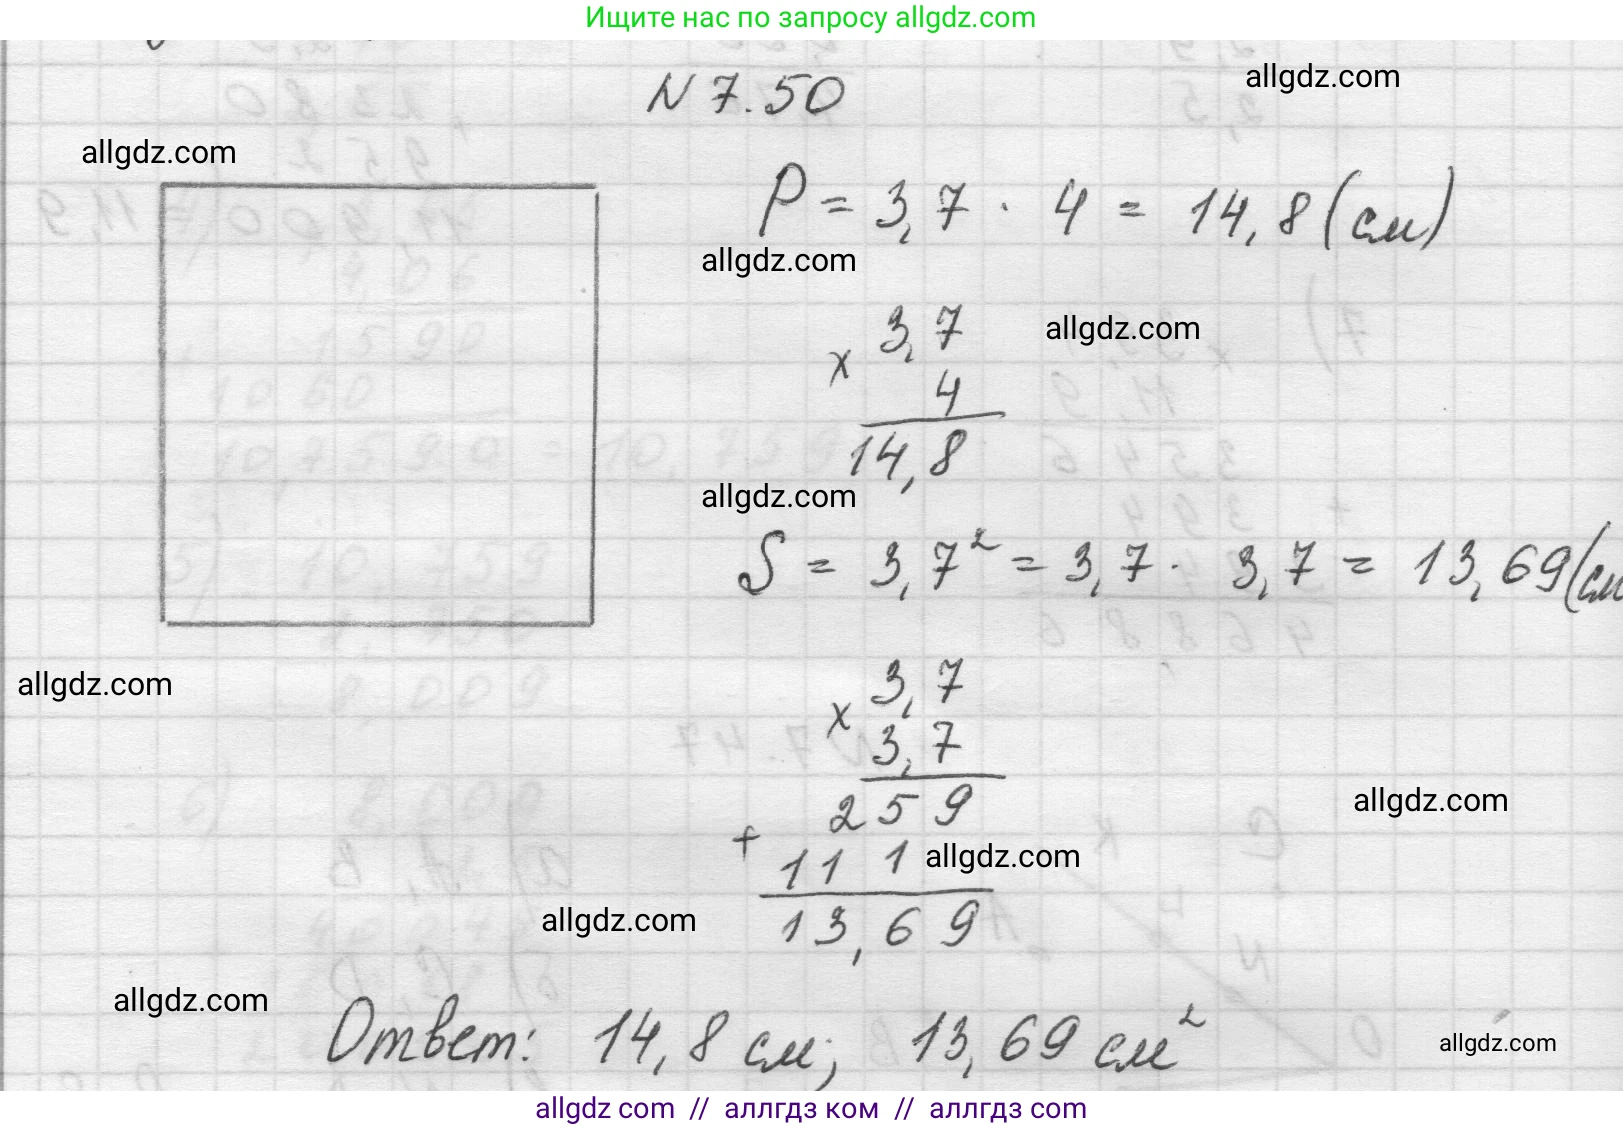 Ищите нас по запросу allgdz.com
N 7.50
allgdz.com
allgdz.com
P = 3,7 · 4 = 14,8 (см)
allgdz.com
3,7
allgdz.com
x
4
14,8
allgdz.com
S = 3,7² = 3,7 · 3,7 = 13,69 (см
allgdz.com
3,7
x
3,7
259
allgdz.com
+
111
allgdz.com
13,69
allgdz.com
allgdz.com
Ответ: 14,8 см; 13,69 см²
allgdz.com
allgdz com // аллгдз ком // аллгдз com